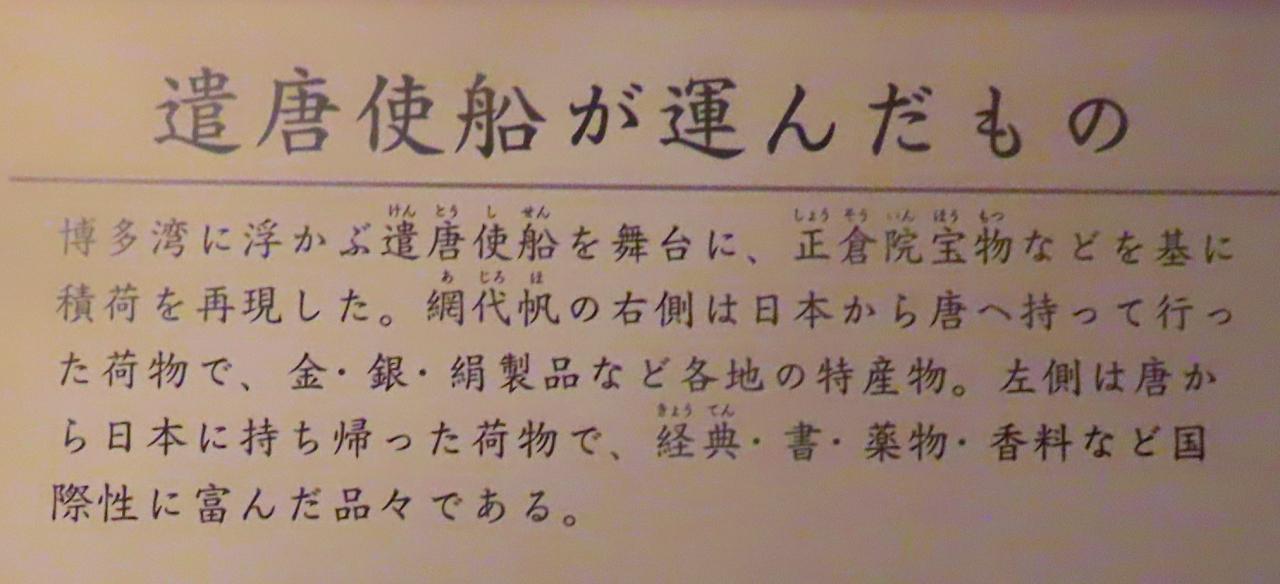 遣唐使船が運んだもの
けん とう し せん しょう そう いん ほう もつ
博多湾に浮かぶ遣唐使船を舞台に、正倉院宝物などを基に
あ じろ ほ
積荷を再現した。網代帆の右側は日本から唐へ持って行っ
た荷物で、金・銀・絹製品など各地の特産物。左側は唐か
きょう てん
ら日本に持ち帰った荷物で、経典・書・薬物・香料など国
際性に富んだ品々である。